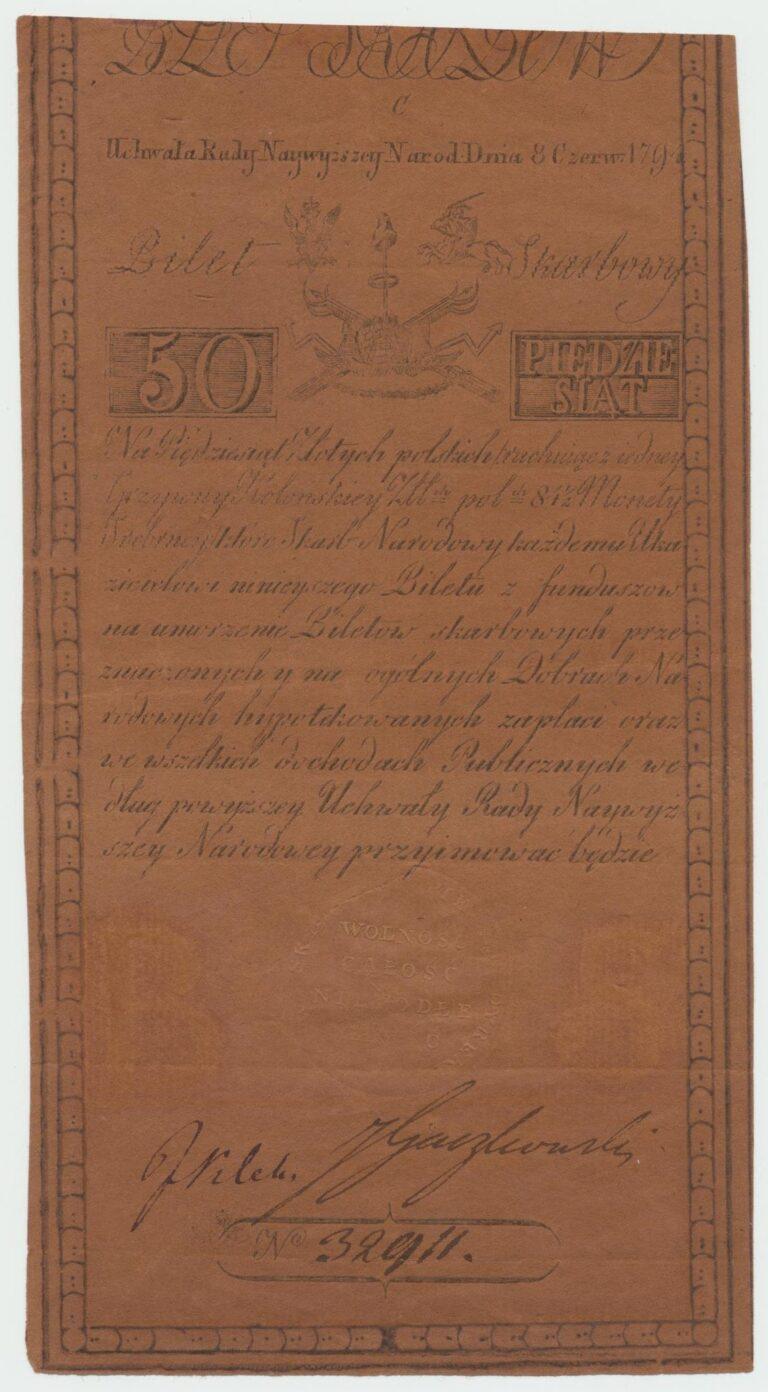 C
Uchwała Rady Naywyższey Narod. Dnia 8 Czerw. 1794
Bilet Skarbowy
50 PIĘDZIE
SIĄT
Na Piędziesiąt Złotych polskich rachuiąc z iedney
Grzywny Kolonskiey Złt. pol. 84½ Monety
Srebrney, które Skarb Narodowy każdemu Uka
zicielowi ninieyszego Biletu z funduszow
na umorzenie Biletow skarbowych prze
znaczonych y na ogólnych Dobrach Na
rodowych hypotekowanych zapłaci oraz
we wszelkich dochodach Publicznych we
dług powyższey Uchwały Rady Naywyż
szey Narodowey przyimować będzie
WOLNOŚĆ
CAŁOŚĆ
NIEPODLE
No 32911.